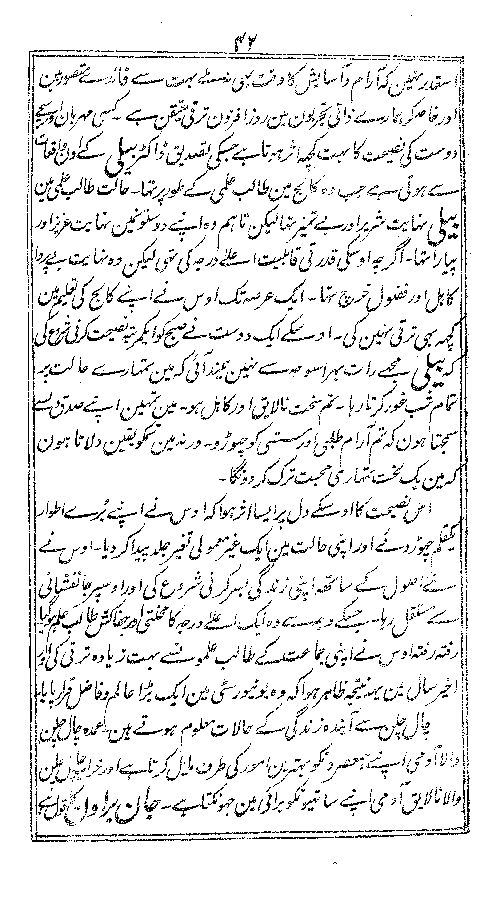 ۴۲
اسقدر نہین کہ آرام و آسایش کا وقت بھی بہت سے فائدے متصور ہین
اور خاصکر ہمارے ذاتی تجربون مین روز افزون ترقی متیقن ہے ۔ کسی مہربان اور سچے
دوست کی نصیحت کا بہت کچھ اثر ہوتا ہے جسکی تصدیق ڈاکٹر بیلی کے اون واقعات
سے ہوتی ہے جب وہ کالج مین طالب علمی کے طور پر تہا ۔ حالت طالب علمی مین
بیلی نہایت شریر اور بے تمیز تہا لیکن تاہم وہ اپنے دوستونمین نہایت عزیز اور
پیارا تہا ۔ اگرچہ اوسکی قدرتی قابلیت اعلے درجہ کی تہی لیکن وہ نہایت بے پروا
کاہل اور فضول خرچ تہا ۔ ایک عرصہ تک اوس نے اپنے کالج کی تعلیم مین
کچہہ بہی ترقی نہین کی ۔ اوسکے ایک دوست نے صبح کو ایکمرتبہ نصیحت کرنی شروع کی
کہ بیلی مجھے رات بہر اسوجہ سے نہین نیند آئی کہ مین تمہارے حالت پر
تمام شب غور کرتا رہا ۔ تم سخت نالایق اور کاہل ہو ۔ مین تمہین اپنے صدق سے
سمجہاتا ہون کہ تم آرام طلبی اور سستی کو چہوڑو ۔ ورنہ مین تمکو یقین دلاتا ہون
کہ مین یک لخت تمہاری صحبت ترک کردونگا ۔
اس نصیحت کا اوسکے دل پر ایسا اثر ہوا کہ اوس نے اپنے بُرے اطوار
یکقلم چہوڑ دئے اور اپنی حالت مین ایک غیر معمولی تغیر جلد پیدا کردیا ۔ اوس نے
نئے اصول کے ساتہہ اپنی زندگی بسر کرنی شروع کی اور اوسپر جانفشانی
سے مستقل رہا ۔ جسکے وجہ سے وہ ایک اعلے درجہ کا محنتی اور جفاکش طالب علم ہوگیا
رفتہ رفتہ اوس نے اپنی جماعت کے طالب علمونسے بہت زیادہ ترقی کی اور
اخیر سال مین یہہ نتیجہ ظاہر ہوا کہ وہ یونیورسٹی مین ایک بڑا عالم و فاضل قرار پایا ۔
چال چلن سے آیندہ زندگی کے حالات معلوم ہوتے ہین ۔ عمدہ چال چلن
والا آدمی اپنے ہمعصرونکو بہترین امور کی طرف مایل کرتا ہے اور خراب چال چلن
والا نالایق آدمی اپنے ساتہیونکو برائی مین جہونکتا ہے ۔ جان براول کا قول ہے